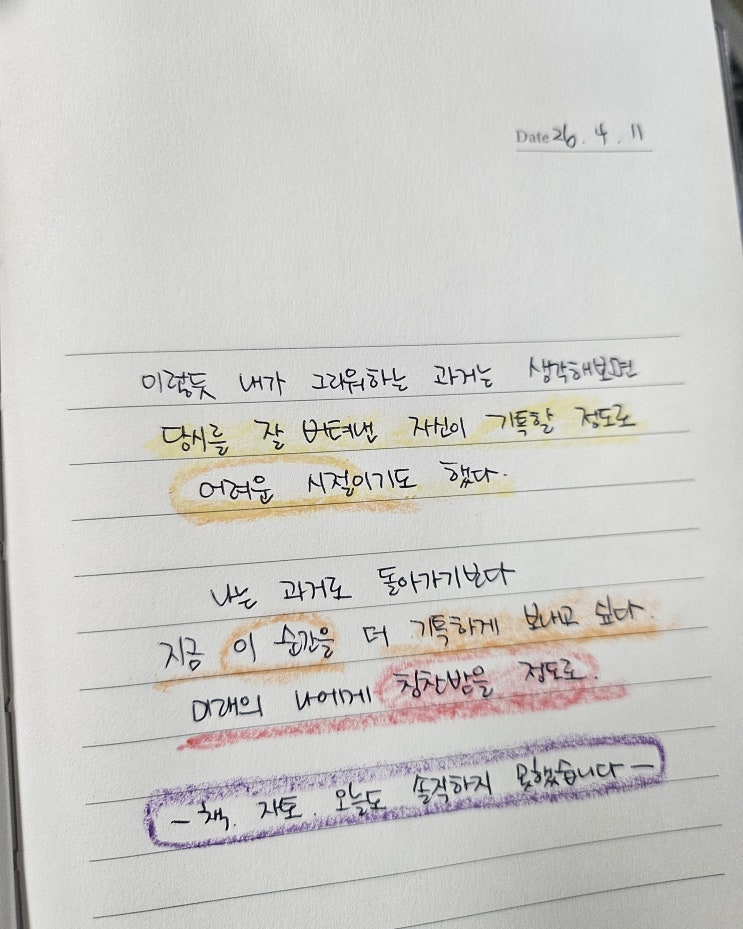 Date 26. 4. 11
이렇듯 내가 그리워하는 과거는 생각해보면
당시를 잘 버텨낸 자신이 기특할 정도로
어려운 시절이기도 했다.
나는 과거로 돌아가기보다
지금 이 순간을 더 기특하게 보내고 싶다.
미래의 나에게 칭찬받을 정도로.
- 책. 자토. 오늘도 솔직하지 못했습니다 -